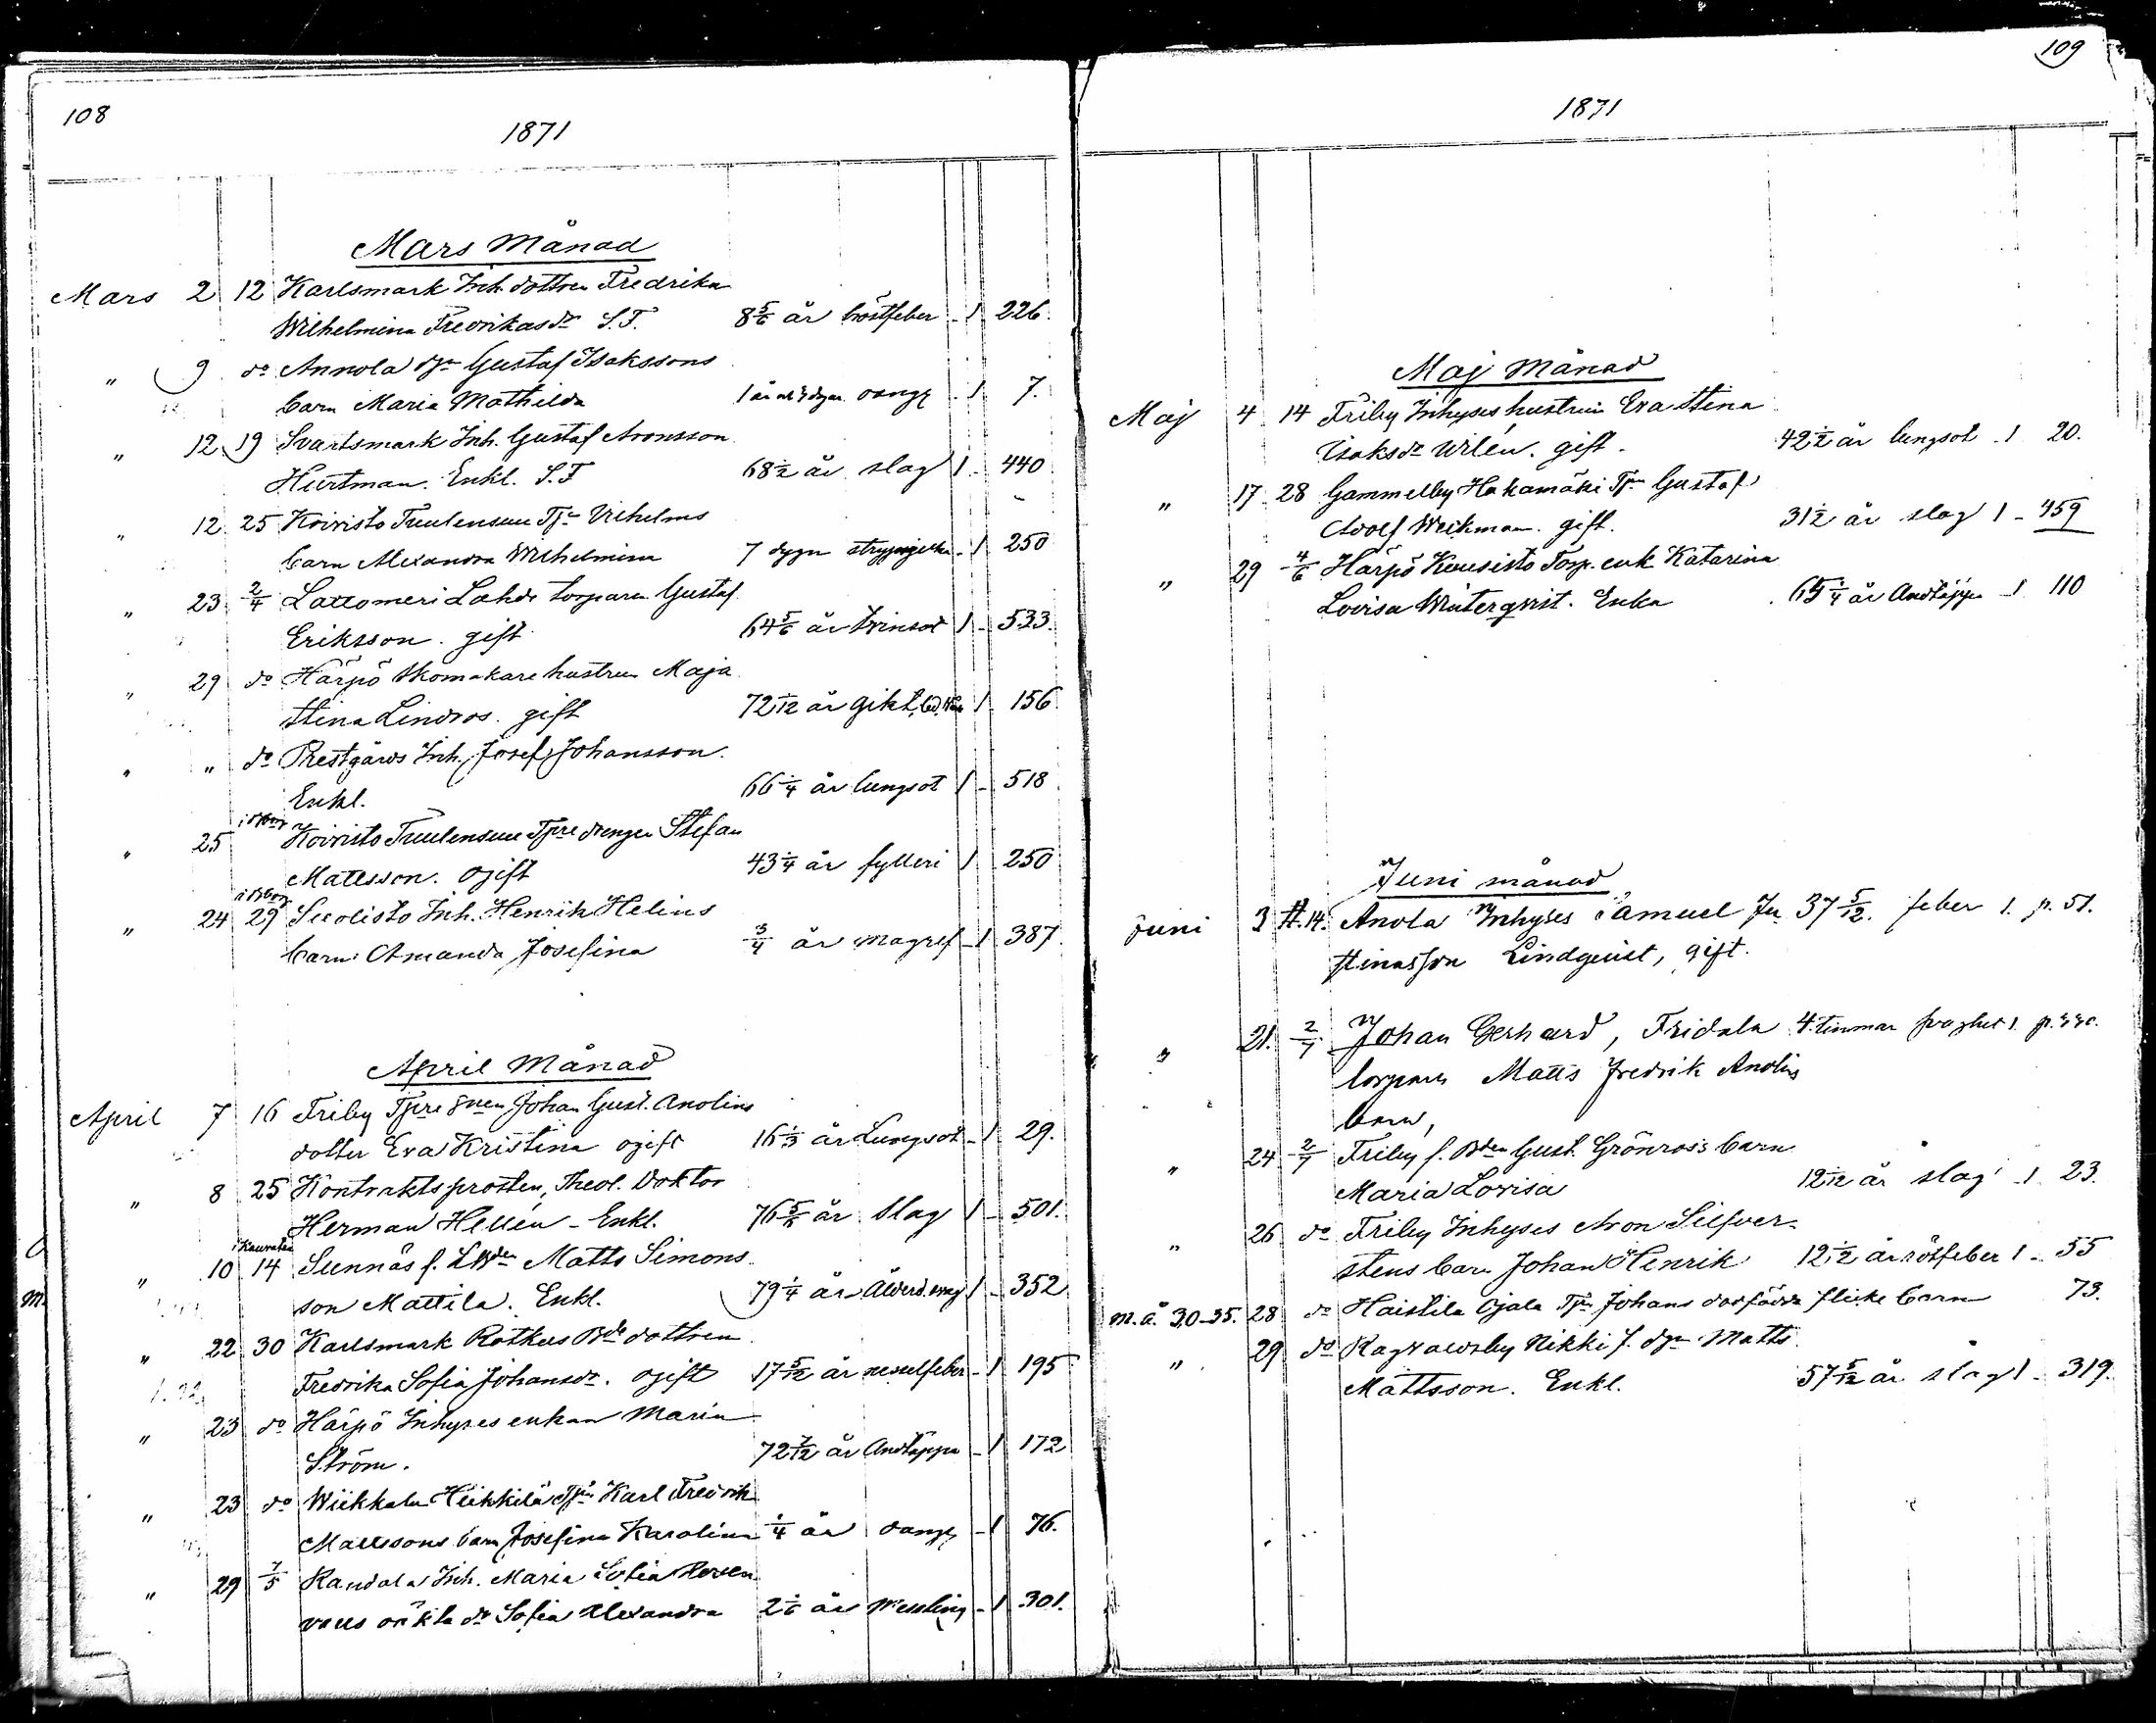 108
1871
Mars Månad
Mars 2 12 Karlsmark Inh. dottren Fredrika
Wilhelmina Fredrikasdr S.F. 8 5/6 år bröstfeber - 1 226.
" 9 do Annola Gustaf Isakssons
barn Maria Mathilda 1 år 7.
" 12 19 Svartsmark Inh. Gustaf Aronsson
Hurtman. Enkl. S.F 68 1/2 år slag 1 - 440
" 12 25 Koivisto Tuulensuu Vilhelms
barn Alexandra Wilhelmina 7 dygn - 1 250
" 23 2/4 Lattomeri Lahdi torparen Gustaf
Eriksson. gift 64 5/6 år tvinsot 1 - 533.
" 29 do Härpö Skomakare hustrun Maja
Stina Lindros. gift 72 1/12 år gikt 1 156
" " do Prestgårds Inh. Josef Johansson.
Enkl. 66 1/4 år lungsot 1 - 518
" 25 Koivisto Tuulensuu drengen Stefan
Mattsson. ogift 43 1/4 år fylleri 1 250
" 24 29 Suolisto Inh. Henrik Helins
barn Amanda Josefina 3/4 år magref - 1 387.
April Månad
April 7 16 Friby Johan Gust. Anolins
dotter Eva Kristina ogift 16 1/3 år Lungsot - 1 29.
" 8 25 Kontraktsprosten, Theol. Doktor
Herman Hellén - Enkl. 76 år Slag 1 - 501.
" 10 14 Sunnäs f. Matts Simons
son Mattila. Enkl. 79 1/4 år 1 - 352
" 22 30 Karlsmark Rotkus dottren
Fredrika Sofia Johansdr. ogift 17 5/12 år nesselfeber - 1 195
" 23 do Härpö Inhyses enkan Maria
Ström. 72 7/12 år Andtäppa - 1 172
" 23 do Wiikkala Heikkilä Karl Fredrik
Mattssons barn Josefina Karolina 1/4 år - 1 76.
" 29 7/5 Randala Inh. Maria Sofia
oäkta dr Sofia Alexandra 2 1/6 år Messling - 1 301.
109
1871
Maj Månad
Maj 4 14 Friby Inhyses hustrun Eva Stina
Isaksdr Wilén. gift. 42 1/2 år lungsot - 1 20.
" 17 28 Gammelby Hakamäki Gustaf
Adolf Weckman. gift. 31 1/2 år slag 1 - 459
" 29 4/6 Härpö Kuusisto Torp. enk. Katarina
Lovisa Winterqvist. Enka 65 1/4 år Andtäppa - 1 110
Juni månad
Juni 3 14. Anola Inhyses Samuel 37 5/12. feber 1. p. 51.
Stinasson Lindqvist, gift.
" 21. 2/7 Johan Gerhard, Fridala 4 timmar svaghet 1.
torparen Matts Fredrik Anolis
barn,
" 24 2/7 Friby f. Gust. Grönroos's barn
Maria Lovisa 12 1/12 år slag 1 23.
" 26 do Friby Inhyses Aron Silfver-
stens barn Johan Henrik 12 1/2 år rötfeber 1 - 55
m. å 30-35. 28 do Haistila Ojala Johans dödfödda flicke barn 73.
" 29 do Ragvaldsby Nikki f. Matts
Mattsson. Enkl. 57 5/12 år slag 1 - 319.